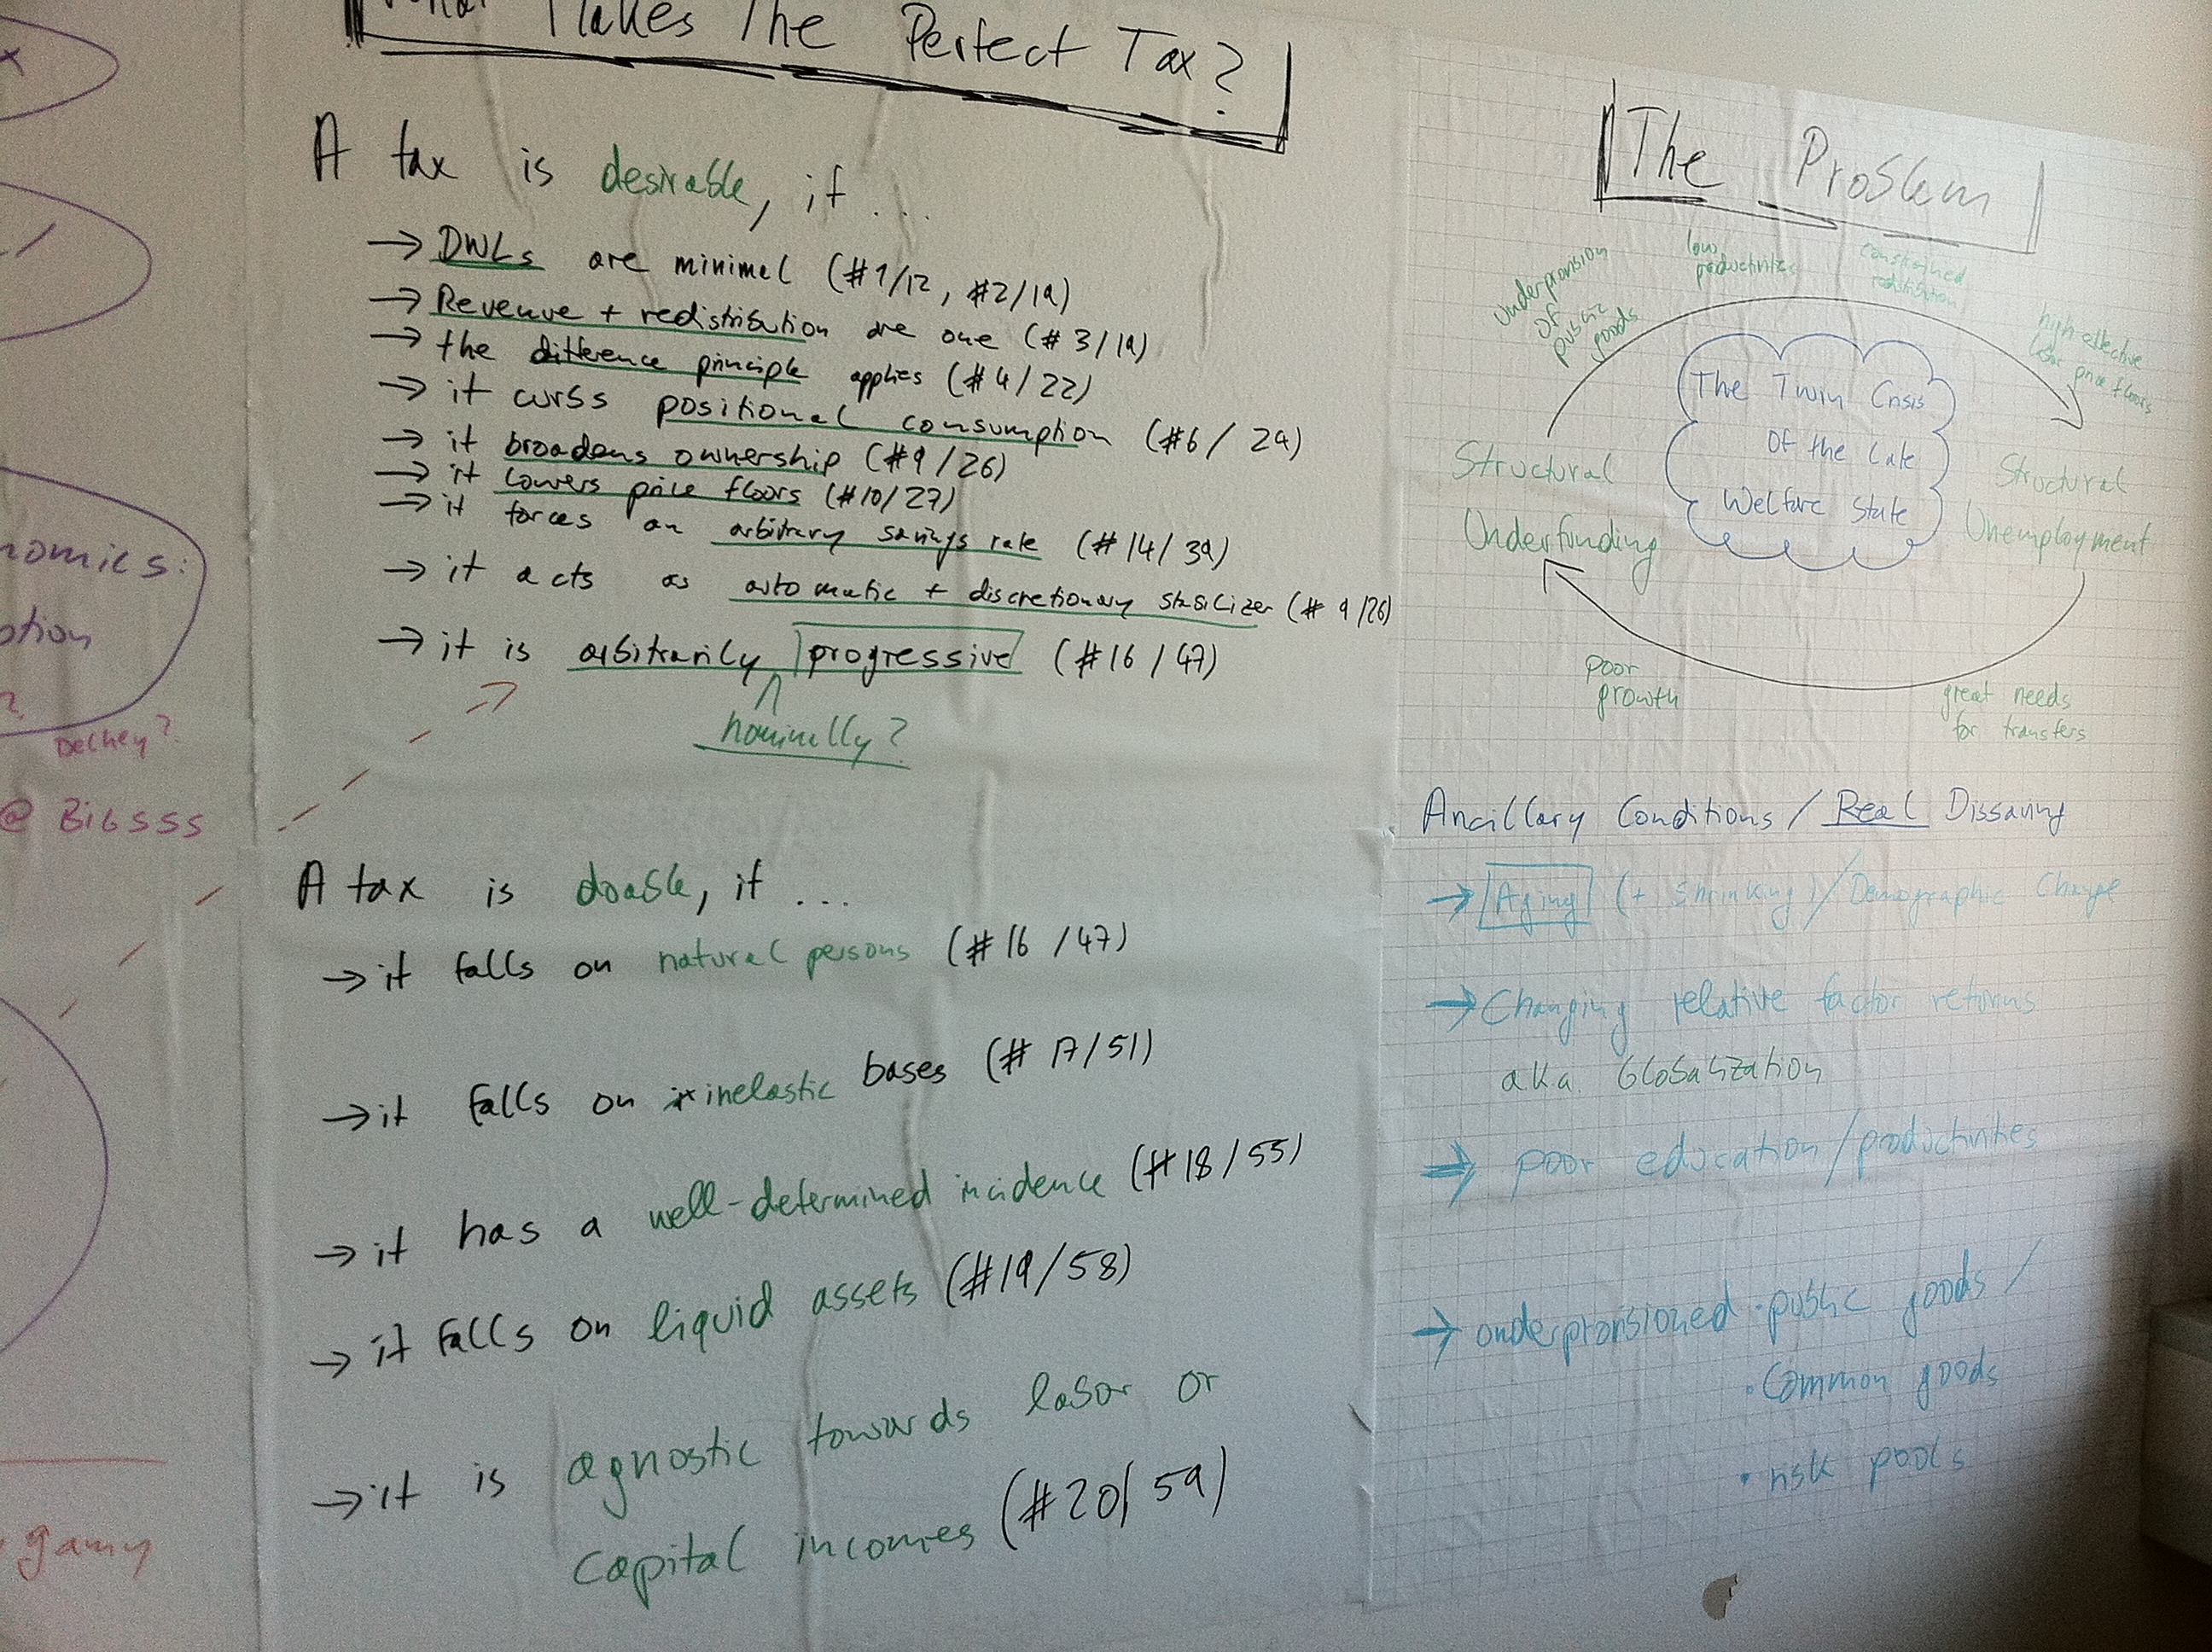 Makes The Perfect Tax?
A tax is desirable, if ...
→ DWLs are minimal (#1/12, #2/19)
→ Revenue + redistribution are one (#3/19)
→ the difference principle applies (#4/22)
→ it curbs positional consumption (#6/24)
→ it broadens ownership (#9/26)
→ it lowers price floors (#10/27)
→ it forces an arbitrary savings rate (#14/39)
→ it acts as automatic + discretionary stabilizer (#9/26)
→ it is arbitrarily progressive (#16/47)
nominally?
A tax is doable, if ...
→ it falls on natural persons (#16/47)
→ it falls on inelastic bases (#17/51)
→ it has a well-determined incidence (#18/55)
→ it falls on liquid assets (#19/58)
→ it is agnostic towards labor or
capital incomes (#20/59)
The Problem
underprovision
of
public
goods
low
productivities
constrained
redistribution
high effective
labor price floors
The Twin Crisis
of the Late
Welfare State
Structural
Underfunding
Structural
Unemployment
poor
growth
great needs
for transfers
Ancillary Conditions / Real Dissaving
→ Aging (+ Shrinking) / Demographic Change
→ Changing relative factor returns
aka. Globalization
⇒ poor education/productivities
→ underprovisioned · public goods /
· Common goods
· risk pools
nomics:
ption
Delhey?
@ Bigsss
gamy